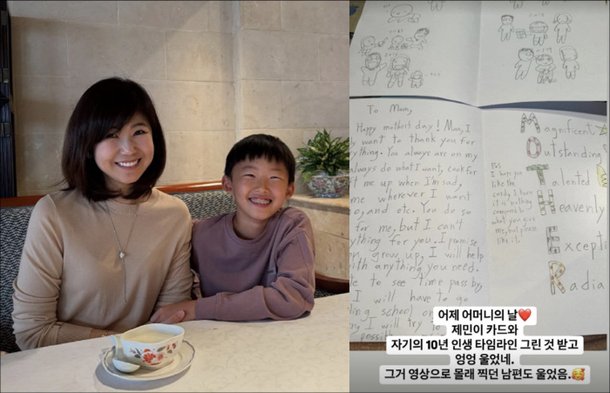 To Mum,
Happy mother's day! Mum, I
want to thank you for
everything. You always are on my
always do what I want, cook for
me up when I'm sad,
me wherever I want
to, and etc. You do so
for me, but I can't
anything for you. I promise
grow up, I will help
with anything you need.
to see time pass by,
I will have to go
school or
I will try to
possib
Magnificent
Outstanding
Talented
Heavenly
Except
Radia
P.S
I hope you
like the
card, I know
it is nothing
compared to
what you can
do, but please
like it.
어제 어머니의 날❤️
제민이 카드와
자기의 10년 인생 타임라인 그린 것 받고
엉엉 울었네.
그거 영상으로 몰래 찍던 남편도 울었음.🥰